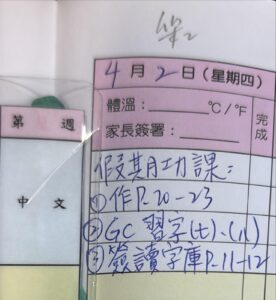 4月2日(星期四)
體溫：°C/°F
家長簽署：
完成
第 週
中文
假期功課：
①作P.20-23
②GC 習字(七)、(八)
③簽讀字庫P.11-12